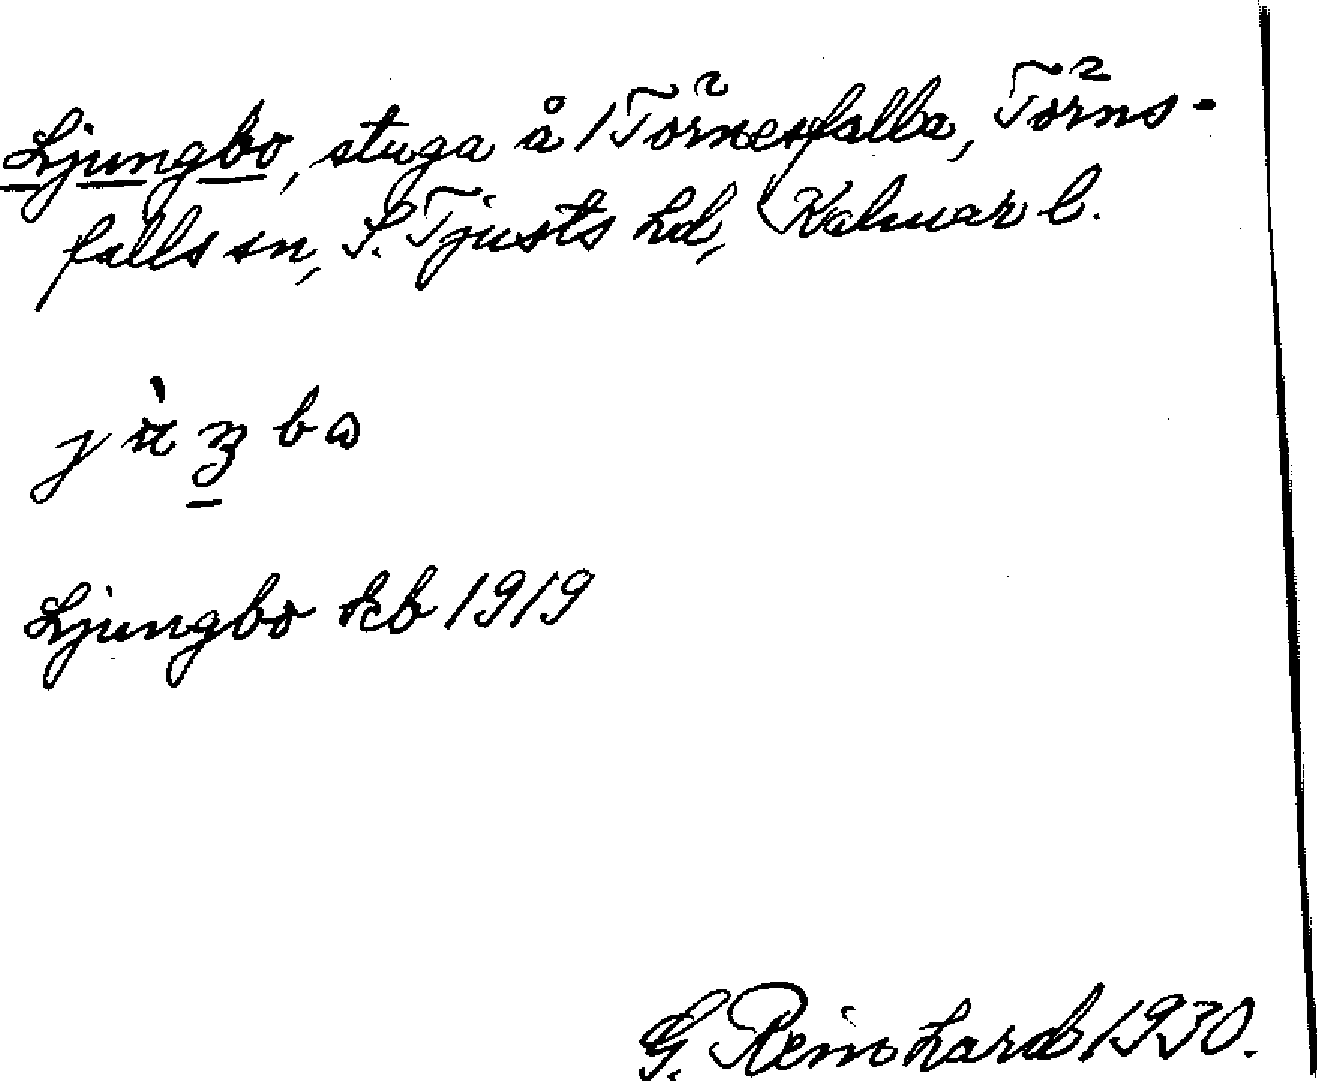 Ljungbo, stuga å Törnesfalla, Törns-
falls sn, S. Tjusts hd, Kalmar l.
Ljungbo kb 1919
G. Reinhard 1930.